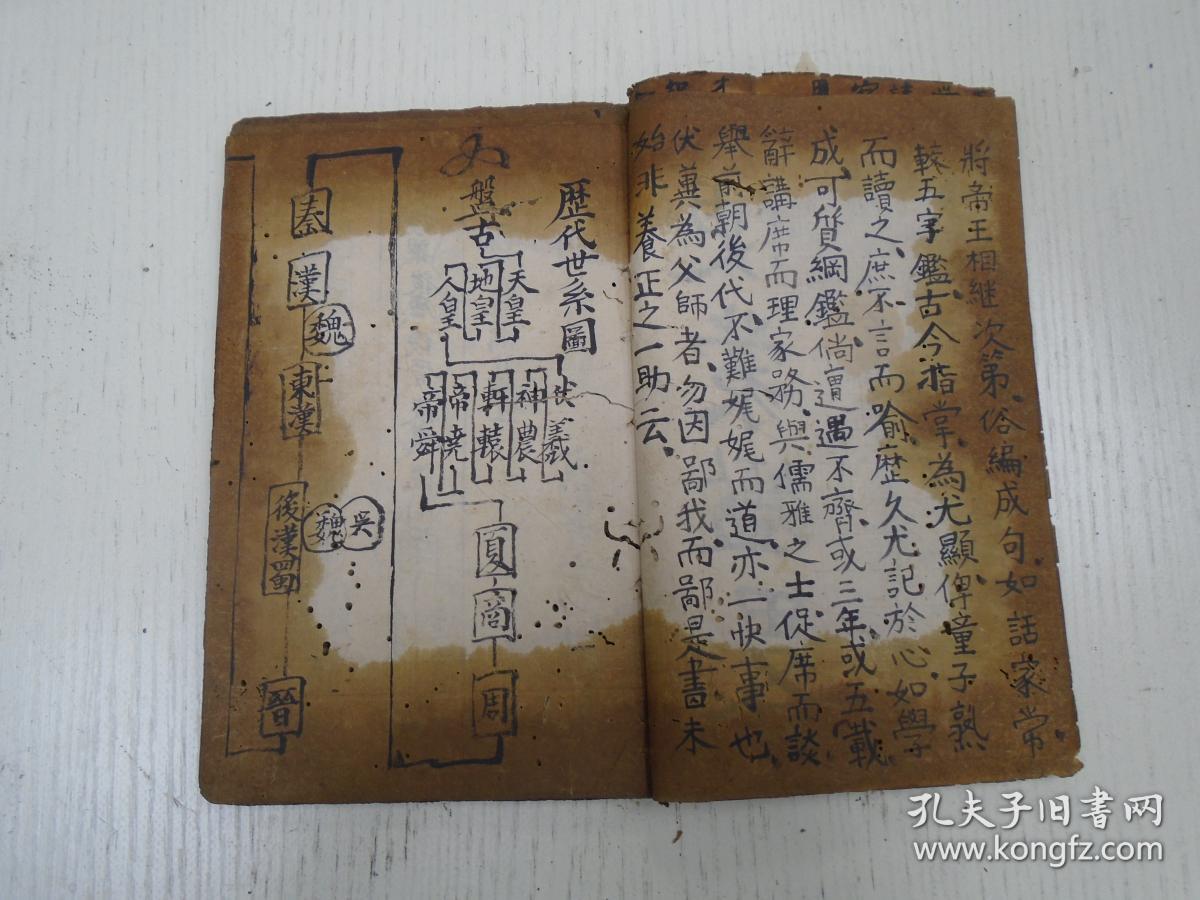 將帝王相継次第俗編成句如話家常
較五字鑑古今指掌為尤顯俾童子熟
而讀之庶不言而喻歴久尤記於心如學
成可質綱鑑倘遭遇不齊或三年或五載
辭講席而理家務與儒雅之士促席而談
舉前朝後代不難娓娓而道亦一快事也
伏兾為父師者勿因鄙我而鄙是書未
始非養正之一助云
歴代世系圖
盤古
天皇
地皇
人皇
伏羲
神農
軒轅
帝堯
帝舜
夏
商
周
秦
漢
魏
東漢
吳
魏
後漢蜀
晉
孔夫子旧书网
www.kongfz.com